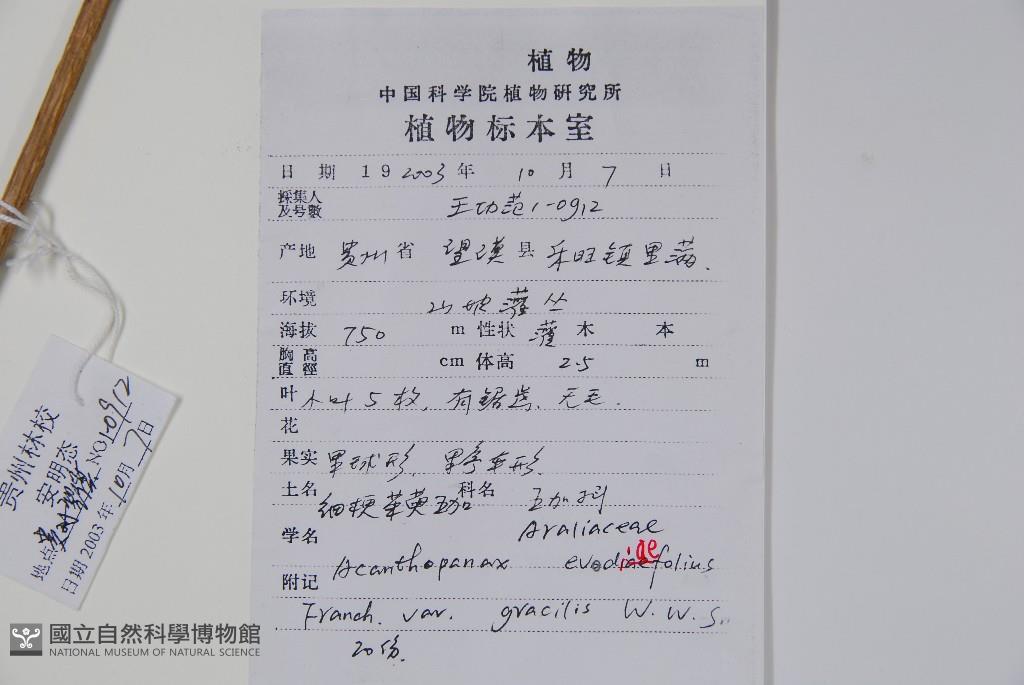 植物
中国科学院植物研究所
植物标本室
日 期 19 2003 年 10 月 7 日
採集人
及号數 王功范 1-0912
产地 贵州 省 望谟 县 乐旺镇里满、
环境 山地灌丛
海拔 750 m 性状 灌 木 本
胸高
直徑 cm 体高 2.5 m
叶 小叶5枚，有锯齿、无毛．
花
果实 果球形，
土名 细梗茱萸五加 科名 五加科
Araliaceae
学名
Acanthopanax evodiaefolius
ige
附记
Franch. var. gracilis W.W.S.
20份.
贵州林校
安明态
NO 1-0912
地点
日期 2003 年 10 月 7 日
國立自然科學博物館
NATIONAL MUSEUM OF NATURAL SCIENCE